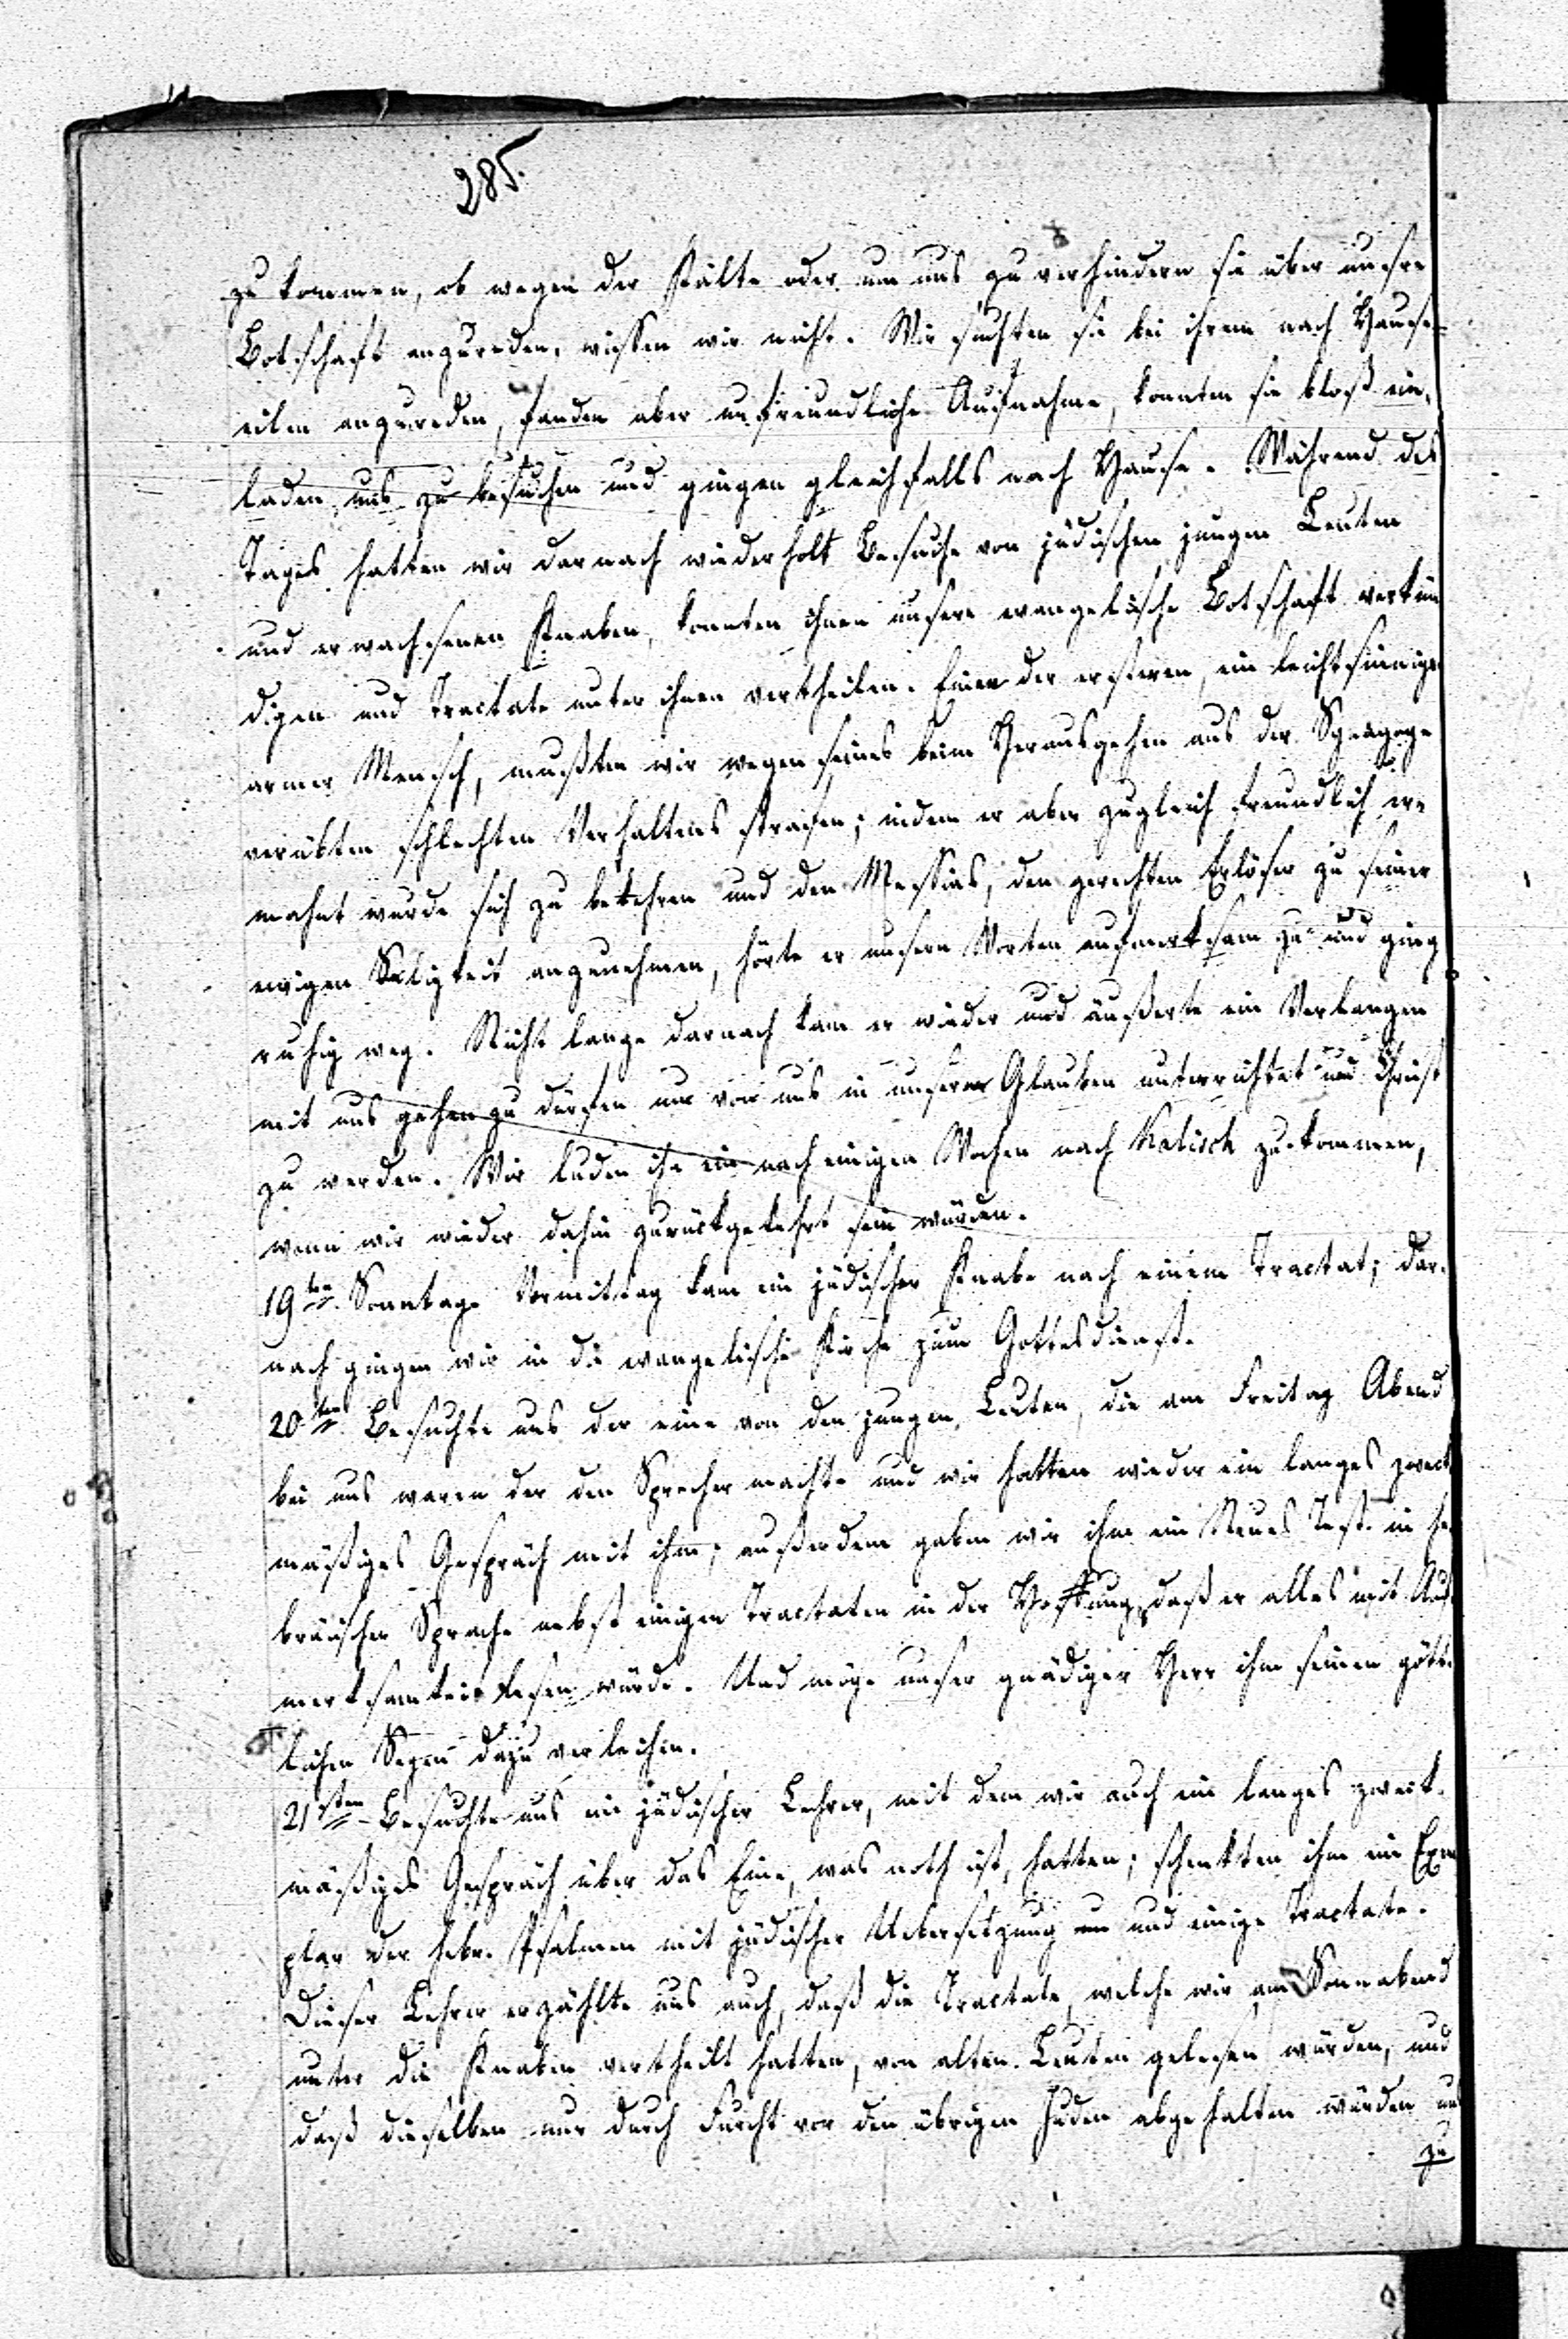 285.
zu kommen, ob wegen der Kälte oder um uns zu verhindern sie über unsre
Botschaft anzureden, wissen wir nicht. Wir suchten sie bei ihrem nach Hause-
eilen anzureden, fanden aber unfreundliche Aufnahme, konnten sie bloß ein-
laden uns zu besuchen und gingen gleichfalls nach Hause. Während des
Tages hatten wir darnach wiederholt Besuche von jüdischen jungen Leuten
und erwachsenen Knaben, konnten ihnen unsere evangelische Botschaft verkün
digen und Tractate unter ihnen vertheilen. Einen der ersteren, ein leichtsinniger
armer Mensch, mußten wir wegen seines beim Herausgehen aus der Synagoge
verübten schlechten Verhaltens strafen; indem er aber zugleich freundlich er-
mahnt wurde sich zu bekehren und den Messias, den gerechten Erlöser zu seiner
ewigen Seligkeit anzunehmen, hörte er unsern Worten aufmerksam zu und ging
ruhig weg. Nicht lange darnach kam er wieder und äußerte ein Verlangen
mit uns gehen zu dürfen um von uns in unserem Glauben unterrichtet und Christ
zu werden. Wir luden ihn ein nach einigen Wochen nach Kalisch zu kommen,
wenn wir wieder dahin zurückgekehrt sein würden.
19ten Sonntags Vormittag kam ein jüdischer Knabe nach einem Tractat; dar-
nach gingen wir in die evangelische Kirche zum Gottesdienst.
20ten Besuchte uns der eine von den jungen Leuten, die am Freitag Abend
bei uns waren der den Sprecher machte und wir hatten wieder ein langes zweck-
mäßiges Gespräch mit ihm; außerdem gaben wir ihm ein Neues Test. in he-
bräischer Sprache nebst einigen Tractaten in der Hoffnung, daß er alles mit Auf-
merksamkeit lesen würde. Und möge unser gnädiger Herr ihm seinen gött-
lichen Segen dazu verleihen.
21sten Besuchte uns ein jüdischer Lehrer, mit dem wir auch ein langes zweck-
mäßiges Gespräch über das Eine, was noth ist, hatten; schenkten ihm ein Exem
plar der hebr. Psalmen mit jüdischer Uebersetzung und einige Tractate.
Dieser Lehrer erzählte uns auch, daß die Tractate, welche wir am Sonnabend
unter die Knaben vertheilt hatten, von alten Leuten gelesen würden, und
daß dieselben nur durch Furcht vor den übrigen Juden abgehalten würden uns
zu